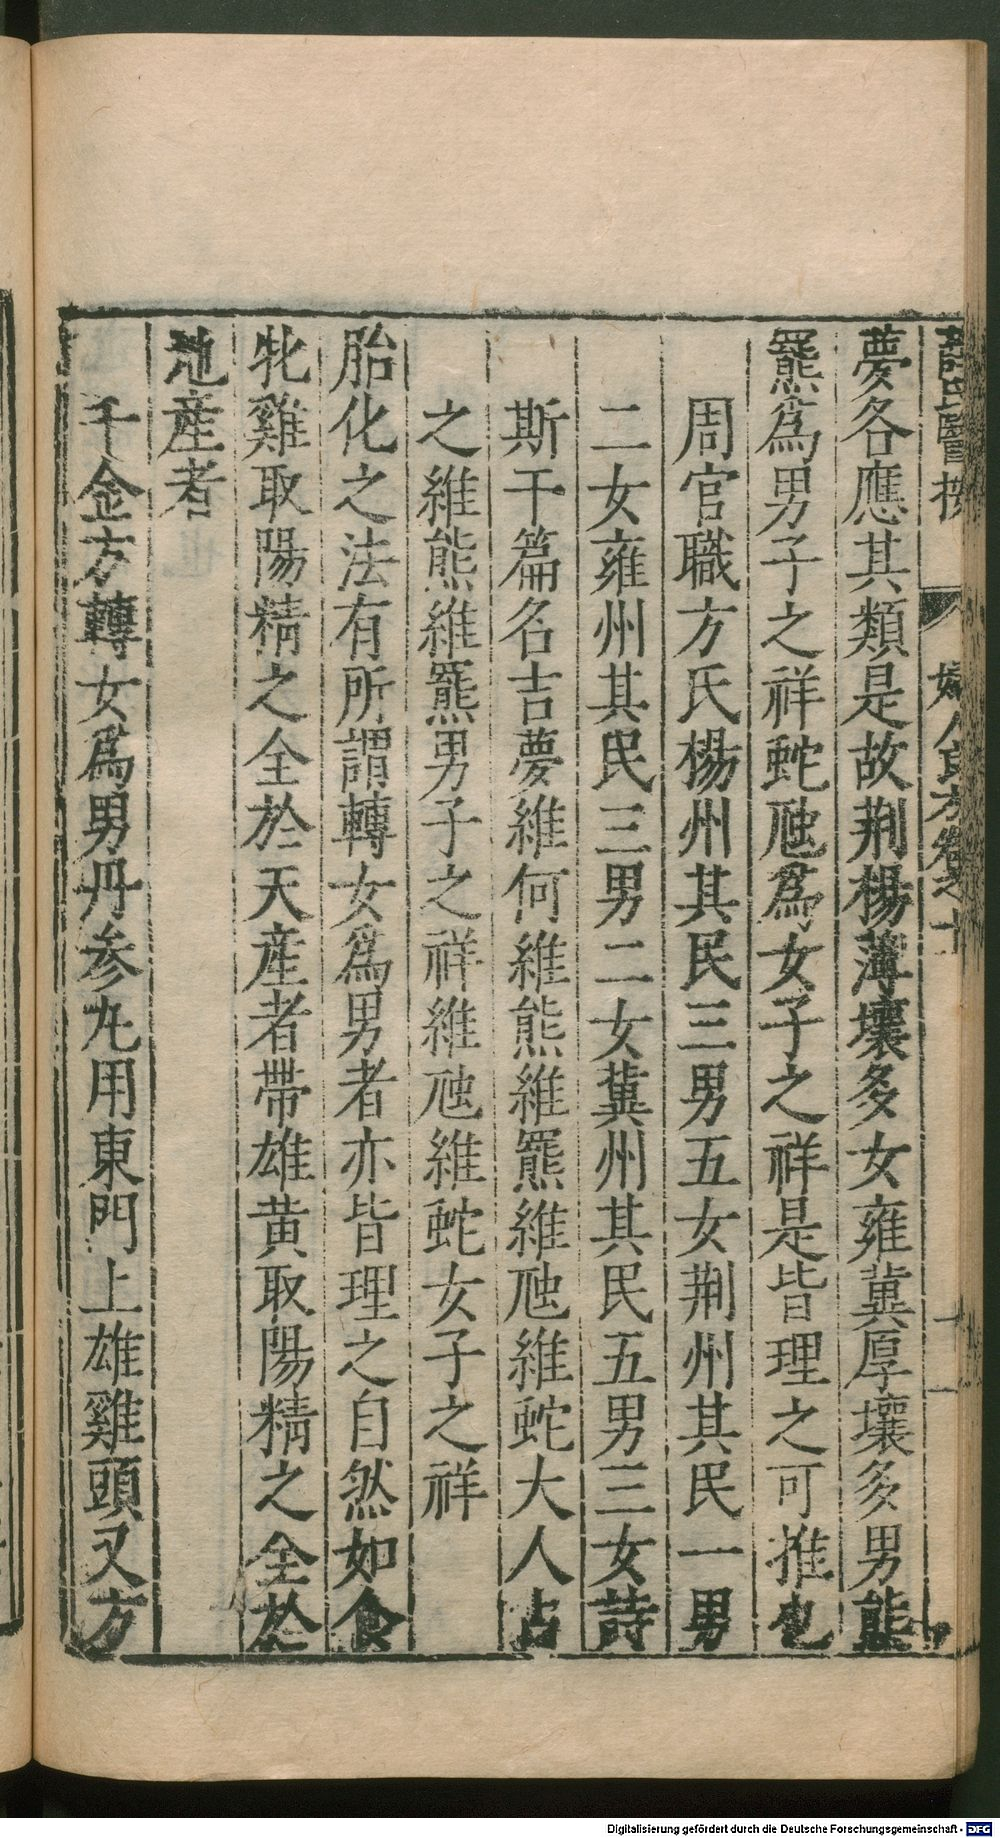 薛氏醫按 婦人良方卷之十 十一
夢各應其類是故荆楊薄壤多女雍冀厚壤多男熊
羆爲男子之祥蛇虺爲女子之祥是皆理之可推也
周官職方氏楊州其民三男五女荆州其民一男
二女雍州其民三男二女冀州其民五男三女詩
斯干篇名吉夢維何維熊維羆維虺維蛇大人占
之維熊維羆男子之祥維虺維蛇女子之祥
胎化之法有所謂轉女爲男者亦皆理之自然如食
牝雞取陽精之全於天産者帶雄黄取陽精之全於
地産者
千金方轉女爲男丹参丸用東門上雄雞頭又方
Digitalisierung gefördert durch die Deutsche Forschungsgemeinschaft - DFG